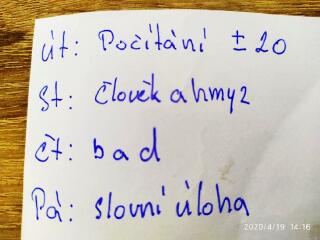 út: Počítání ± 20
st: člověk a hmyz
čt: bad
Pá: slovní úloha
2020/4/19 14:16